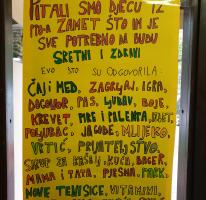 PITALI SMO DJECU IZ
PGP-A ZAMET ŠTO IM JE
SVE POTREBNO DA BUDU
SRETNI I ZDRAVI
EVO ŠTO SU ODGOVORILA:
ČAJ I MED, ZAGRLJAJ, IGRA,
DOGOVOR, PAS, LJUBAV, BOJE,
KREVET, PIRE I PALENTA,
POLJUBAC, JAGODE, MLIJEKO,
VRTIĆ, PRIJATELJSTVO,
SIRUP ZA KAŠALJ, KUĆA, BAGER,
MAMA I TATA, PJESMA, PARK,
NOVE TENISICE, VITAMINI,